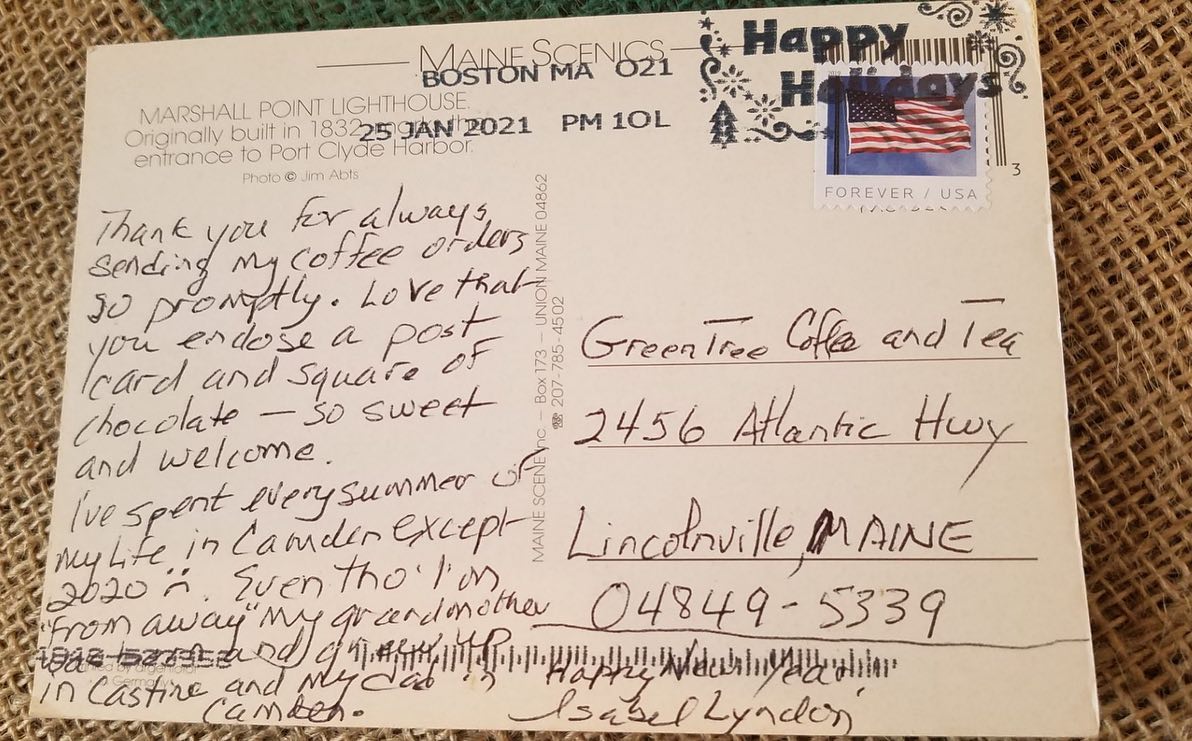 MAINE SCENICS
BOSTON MA 021
25 JAN 2021 PM 10L
Happy
Holidays
MARSHALL POINT LIGHTHOUSE.
Originally built in 1832
entrance to Port Clyde Harbor.
Photo © Jim Abts
FOREVER / USA
3
Thank you for always
sending my coffee orders
so promptly. Love that
you enclose a post
card and square of
chocolate — so sweet
and welcome.
I've spent every summer of
my life in Camden except
2020 . Even tho' I'm
"from away" my grandmother
was born and grew up
in Castine and my dad in
Camden.
Happy New Year,
Isabel Lyndon
MAINE SCENE Inc. – Box 173 – UNION MAINE 04862
☎ 207-785-4502
GreenTree Coffee and Tea
2456 Atlantic Hwy
Lincolnville, MAINE
04849-5339
Germany